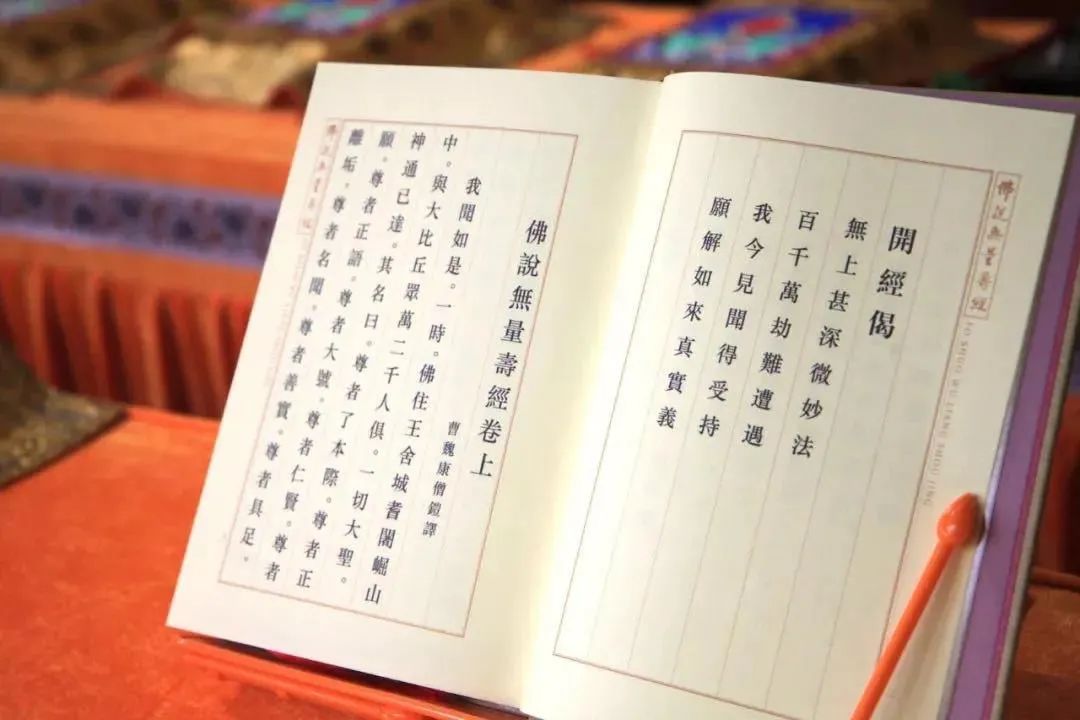 佛說無量壽經
FO SHUO WU LIANG SHOU JING
開經偈
無上甚深微妙法
百千萬劫難遭遇
我今見聞得受持
願解如來真實義
佛說無量壽經卷上
曹魏康僧鎧譯
我聞如是。一時。佛住王舍城耆闍崛山
中。與大比丘眾萬二千人俱。一切大聖。
神通已達。其名曰。尊者了本際。尊者正
願。尊者正語。尊者大號。尊者仁賢。尊者
離垢。尊者名聞。尊者善實。尊者具足。
佛說無量壽經